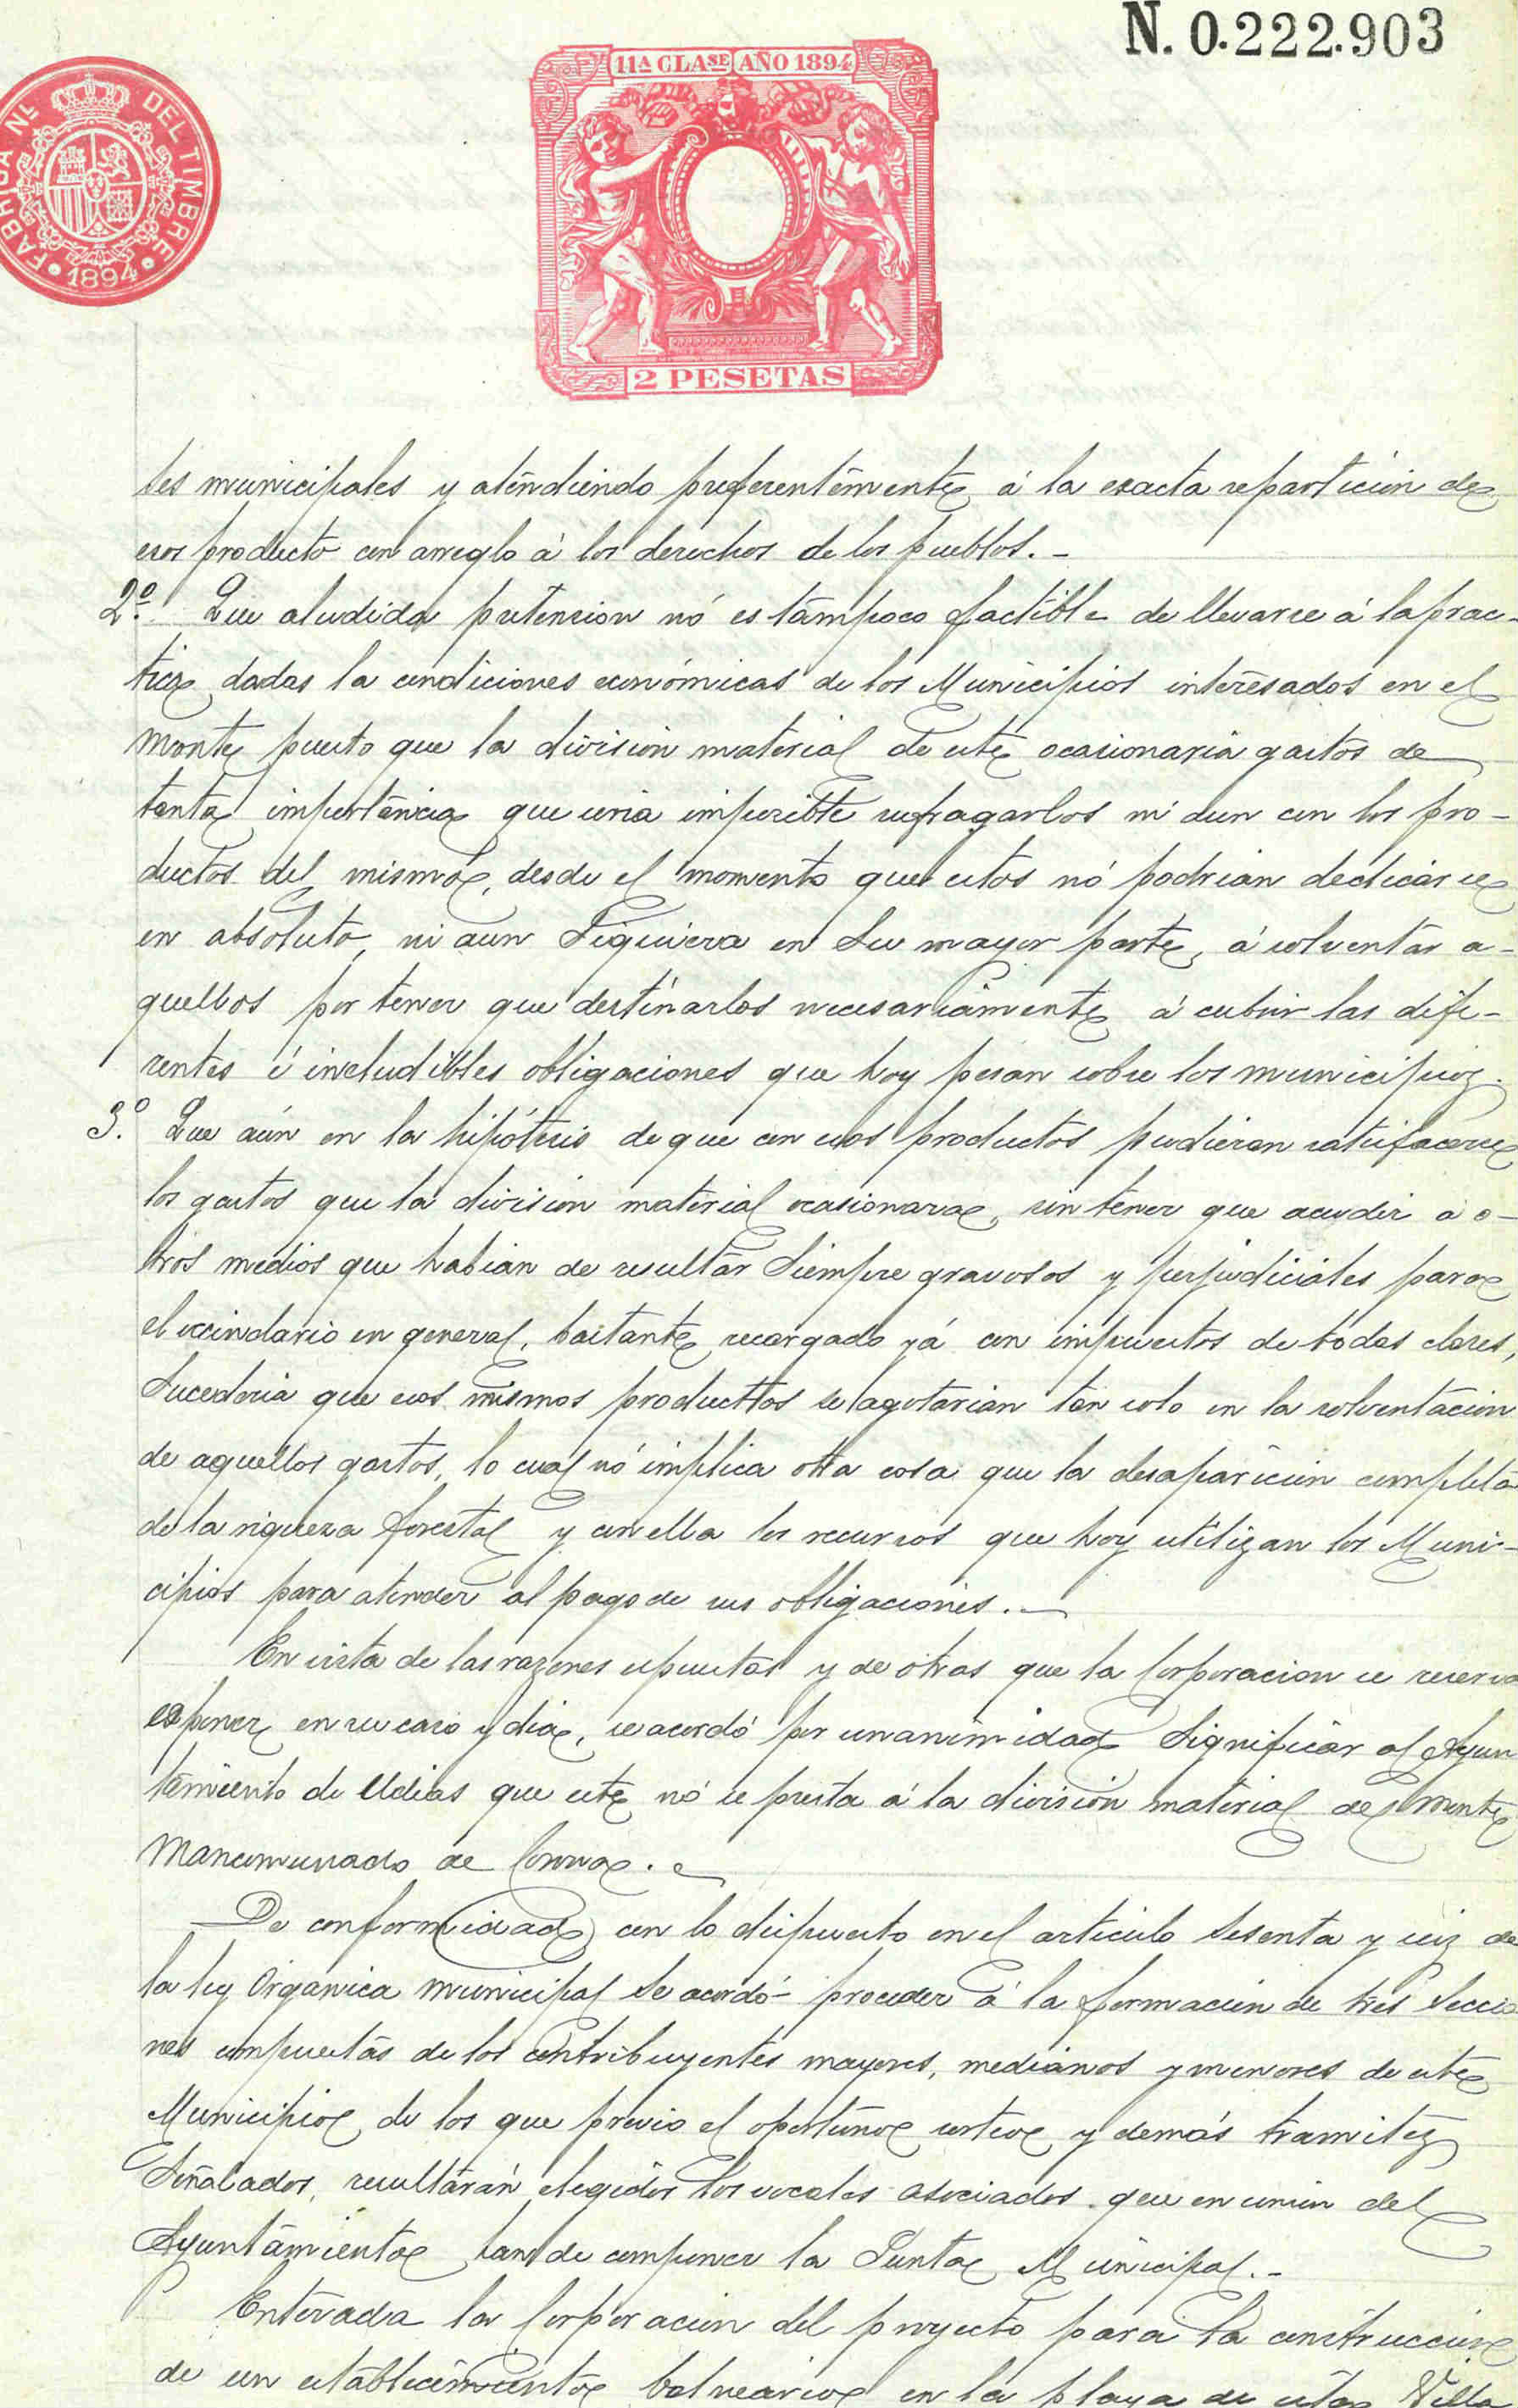 N. 0.222.903
11ª CLASE AÑO 1894
FABRICA Nˡ DEL TIMBRE
· 1894 ·
2 PESETAS
tes municipales y atendiendo preferentemente á la exacta reparticion de
esos producto con arreglo á los derechos de los pueblos.-
2º. Que aludida pretension nó es tampoco factible de llevarse á la prac-
tica dadas la condiciones económicas de los Municipios interesados en el
monte puesto que la division material de este ocasionaria gastos de
tanta importancia que seria imposible sufragarlos ni aun con los pro-
ductos del mismo, desde el momento que estos nó podrian dedicarse
en absoluto, ni aun siquiera en su mayor parte, á solventar a-
quellos por tener que destinarlos necesariamente á cubrir las dife-
rentes é ineludibles obligaciones que hoy pesan sobre los municipios.
3.º Que aún en la hipótesis de que con esos productos pudieran satisfacerse
los gastos que la division material ocasionara, sin tener que acudir á o-
tros medios que habian de resultar siempre gravosos y perjudiciales para
el vecindario en general, bastante recargado yá con impuestos de todas clases,
Sucederia que esos mismos producttos se agotarian tan solo en la solventacion
de aquellos gastos, lo cual nó implica otra cosa que la desaparicion completa
de la riqueza forestal y con ella los recursos que hoy utilizan los Muni-
cipios para atender al pago de sus obligaciones.-
En vista de las razones expuestas y de otras que la Corporacion se reserva
exponer en su caso y dia, se acordó por unanimidad significar al Ayun
tamiento de Udias que este nó se presta á la division material del monte
mancomunado de Corona.-
De conformidad con lo dispuesto en el articulo sesenta y seis de
la ley Organica municipal se acordó proceder á la formacion de tres Seccio
nes compuestas de los contribuyentes mayores, medianos y menores de este
Municipio de los que previo el oportuno sorteo y demás tramites
Señalados, resultarán elegidos los vocales asociados que en union del
Ayuntamiento han de componer la Junta Municipal.-
Enterada la Corporacion del proyecto para la construccion
de un establecimiento balneario en la playa de esta Villa